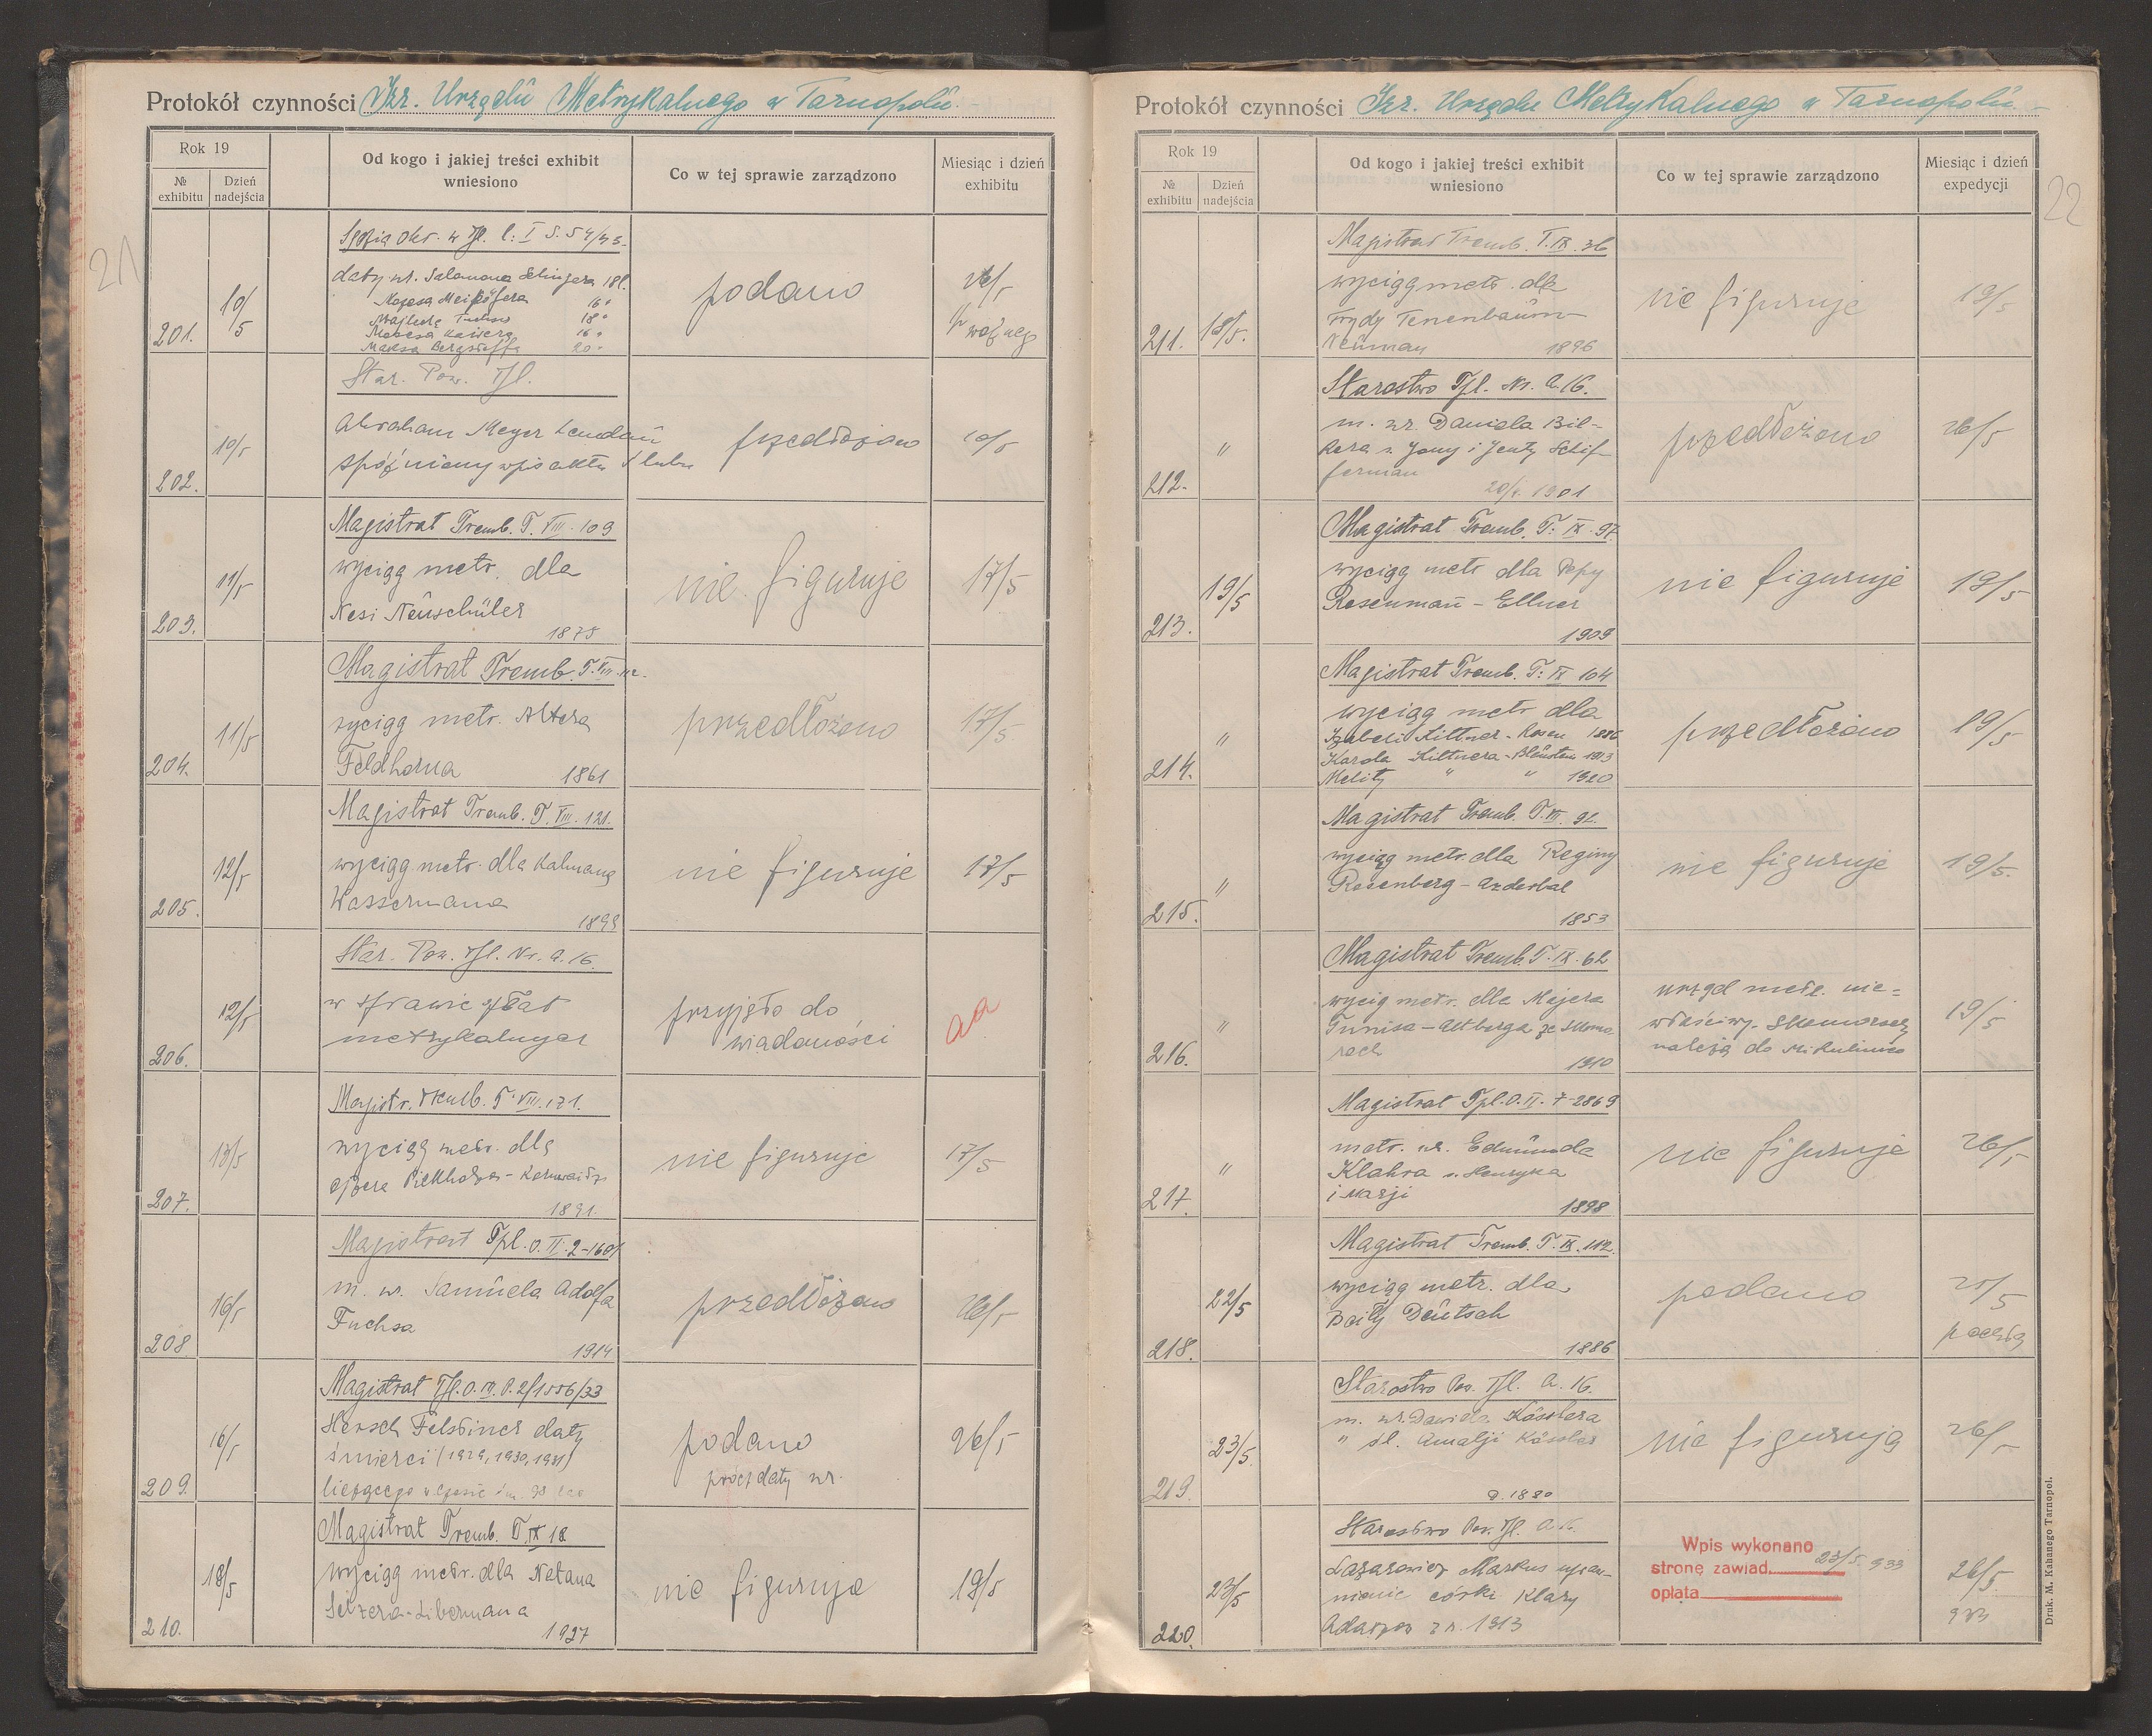 Protokół czynności Izr. Urzędu Metrykalnego w Tarnopolu
Rok 19
№ exhibitu
Dzień nadejścia
Od kogo i jakiej treści exhibit wniesiono
Co w tej sprawie zarządzono
Miesiąc i dzień exhibitu
21
201.
10/5
daty ur. Salamona 18 l.
16 "
18 "
16 "
20 "
podano
202.
10/5
Star. Pow. Tpl.
Abraham Meyer Landau
spóźniony wpis aktu ślubu
przedłożono
10/5
203.
11/5
Magistrat Tremb. T. VIII. 109
wyciąg metr. dla
Nesi Neuschüler
1875
nie figuruje
17/5
204.
11/5
Magistrat Tremb. T. VIII.
wyciąg metr. Altera
Feldhorna 1861
przedłożono
17/5
205.
12/5
Magistrat Tremb. T. VIII. 121.
wyciąg metr. dla Kalmana
Wassermana
1899
nie figuruje
17/5
206.
12/5
Star. Pow. Tpl. Nr. a. 16.
w sprawie opłat
metrykalnych
przyjęto do
wiadomości
aa
207.
13/5
Magistr. Tremb. T. VIII. 171.
wyciąg metr. dla
1891.
nie figuruje
17/5
208.
16/5
Magistrat Tpl. O. II. 2-1601
m. ur. Samuela Adolfa
Fuchsa
1914
przedłożono
26/5
209.
16/5
Magistrat Tpl. O. III. P. 2/1556/33
Hersch Felsbiner daty
śmierci (1929, 1930, 1931)
podano
prócz daty ur.
26/5
210.
18/5
Magistrat Tremb. T. IX 18
wyciąg metr. dla Natana
Selzera-Libermana
1927
nie figuruje
19/5
Protokół czynności Izr. Urzędu Metrykalnego w Tarnopolu
22
Rok 19
№ exhibitu
Dzień nadejścia
Od kogo i jakiej treści exhibit wniesiono
Co w tej sprawie zarządzono
Miesiąc i dzień expedycji
211.
18/5.
Magistrat Tremb. T. IX. 36
wyciąg metr. dla
Frydy Tenenbaum-
Neuman 1896
nie figuruje
19/5
212.
"
Starostwo Tpl. Nr. a. 16.
m. ur. Daniela Bil-
kera s. Jony i Jenty Schif-
ferman
1901
przedłożono
26/5
213.
19/5
Magistrat Tremb. T. IX. 97.
wyciąg metr dla Pepy
Rosenman - Ellner
1909
nie figuruje
19/5
214.
"
Magistrat Tremb. T. IX 104
wyciąg metr dla
Izabeli Kittner - Rosen 1886
Karola Kittnera - Blaustein 1913
Melity " " 1920
przedłożono
19/5
215.
"
Magistrat Tremb. T. VII. 92
wyciąg metr. dla Reginy
Rosenberg - Azderbal
1853
nie figuruje
19/5.
216.
"
Magistrat Tremb. T. IX. 62
wyciąg metr. dla Majera
Tunisa - Altberga ze Skomo
roch
1910
urząd metr. nie=
właściwy. Skomorochy
należą do Mikuliniec
19/5
217.
"
Magistrat Tpl. O. II. 7-2869
metr. ur. Edmunda
Klahra s. Henryka
i Marji
1898
nie figuruje
26/5
218.
22/5
Magistrat Tremb. T. IX. 112.
wyciąg metr. dla
Baili Deutsch
1886
podano
25/5
pocztą
219.
23/5.
Starostwo Pow. Tpl. a. 16.
m. ur. Dawida Kässlera
" śl. Amalji Kässler
1880
nie figurują
26/5
220.
23/5
Starostwo Pow. Tpl. a. 16.
Lazarowicz Markus upraw-
nienie córki Klary
z r. 1913
Wpis wykonano
stronę zawiad. 23/5. 933
opłata
26/5.
933
Druk. M. Kahanego Tarnopol.